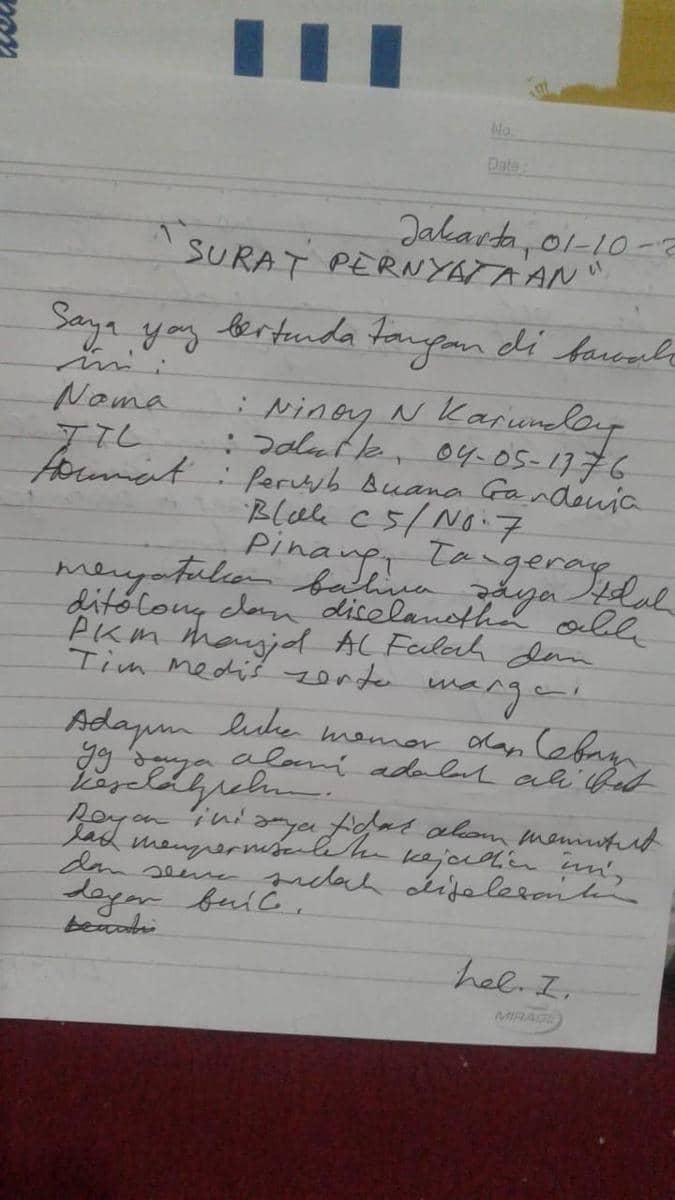 No.
Date:
Jakarta, 01-10-2
"SURAT PERNYATAAN"
Saya yag bertanda tangan di bawah
ini :
Nama : Ninoy N Karundeng
TTL : Jakarta, 04-05-1976
Alamat : Perum Buana Gardenia
Blok C5/No.7
Pinang, Tangerang
menyatakan bahwa saya telah
ditolong dan diselamatkan oleh
PKM Masjid Al Falah dan
Tim Medis serta warga.
Adapun luka memar dan lebam
yg saya alami adalah akibat
kesalahpahaman.
Dengan ini saya tidak akan menuntut
dan mempermasalahkan kejadian ini,
dan semua sudah diselesaikan
dengan baik.
hal. I.
MIRAGE